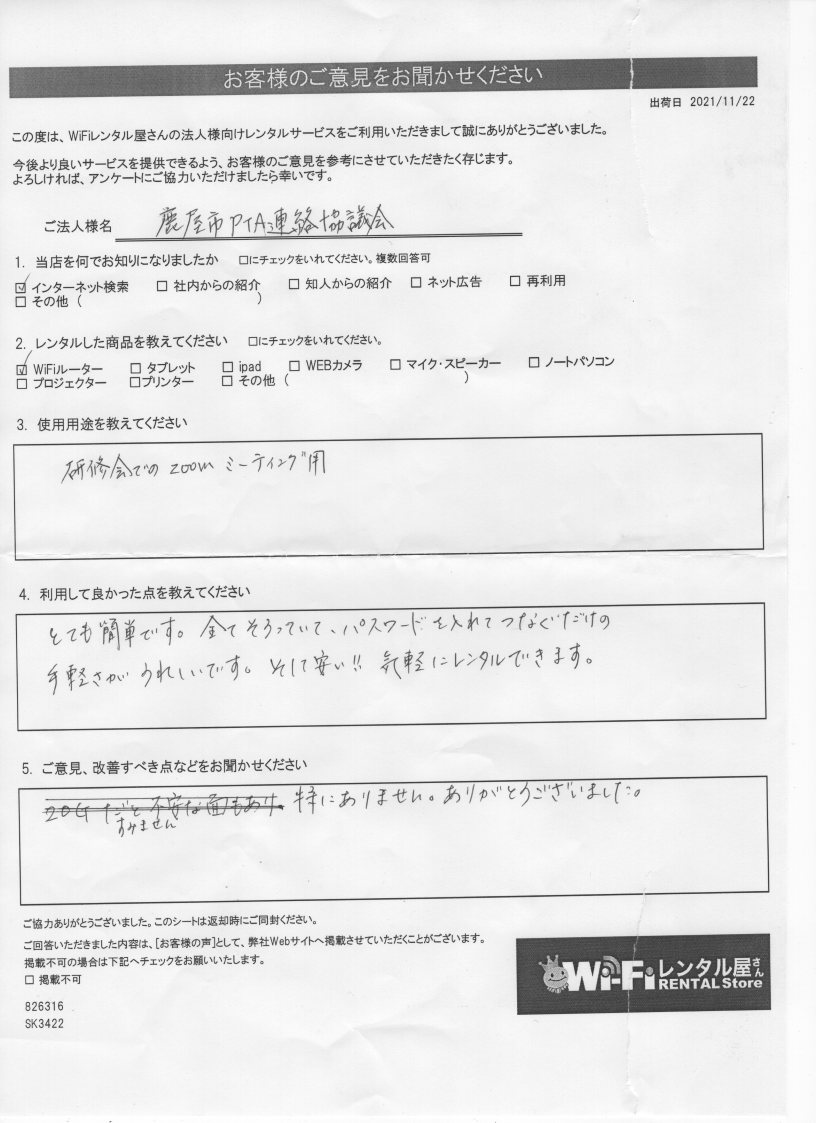 お客様のご意見をお聞かせください
出荷日 2021/11/22
この度は、WiFiレンタル屋さんの法人様向けレンタルサービスをご利用いただきまして誠にありがとうございました。
今後より良いサービスを提供できるよう、お客様のご意見を参考にさせていただきたく存じます。
よろしければ、アンケートにご協力いただけましたら幸いです。
ご法人様名 鹿屋市PTA連絡協議会
1. 当店を何でお知りになりましたか □にチェックをいれてください。複数回答可
☑ インターネット検索 □ 社内からの紹介 □ 知人からの紹介 □ ネット広告 □ 再利用
□ その他 ( )
2. レンタルした商品を教えてください □にチェックをいれてください。
☑ WiFiルーター □ タブレット □ ipad □ WEBカメラ □ マイク・スピーカー □ ノートパソコン
□ プロジェクター □プリンター □ その他 ( )
3. 使用用途を教えてください
研修会での zoom ミーティング用
4. 利用して良かった点を教えてください
とても簡単です。全てそろっていて、パスワードを入れてつなぐだけの
手軽さがうれしいです。そして安い!! 気軽にレンタルできます。
5. ご意見、改善すべき点などをお聞かせください
20Gだと不安な面もあり、特にありません。ありがとうございました。
すみません
ご協力ありがとうございました。このシートは返却時にご同封ください。
ご回答いただきました内容は、[お客様の声]として、弊社Webサイトへ掲載させていただくことがございます。
掲載不可の場合は下記へチェックをお願いいたします。
□ 掲載不可
826316
SK3422
Wi-Fiレンタル屋さん
RENTAL Store